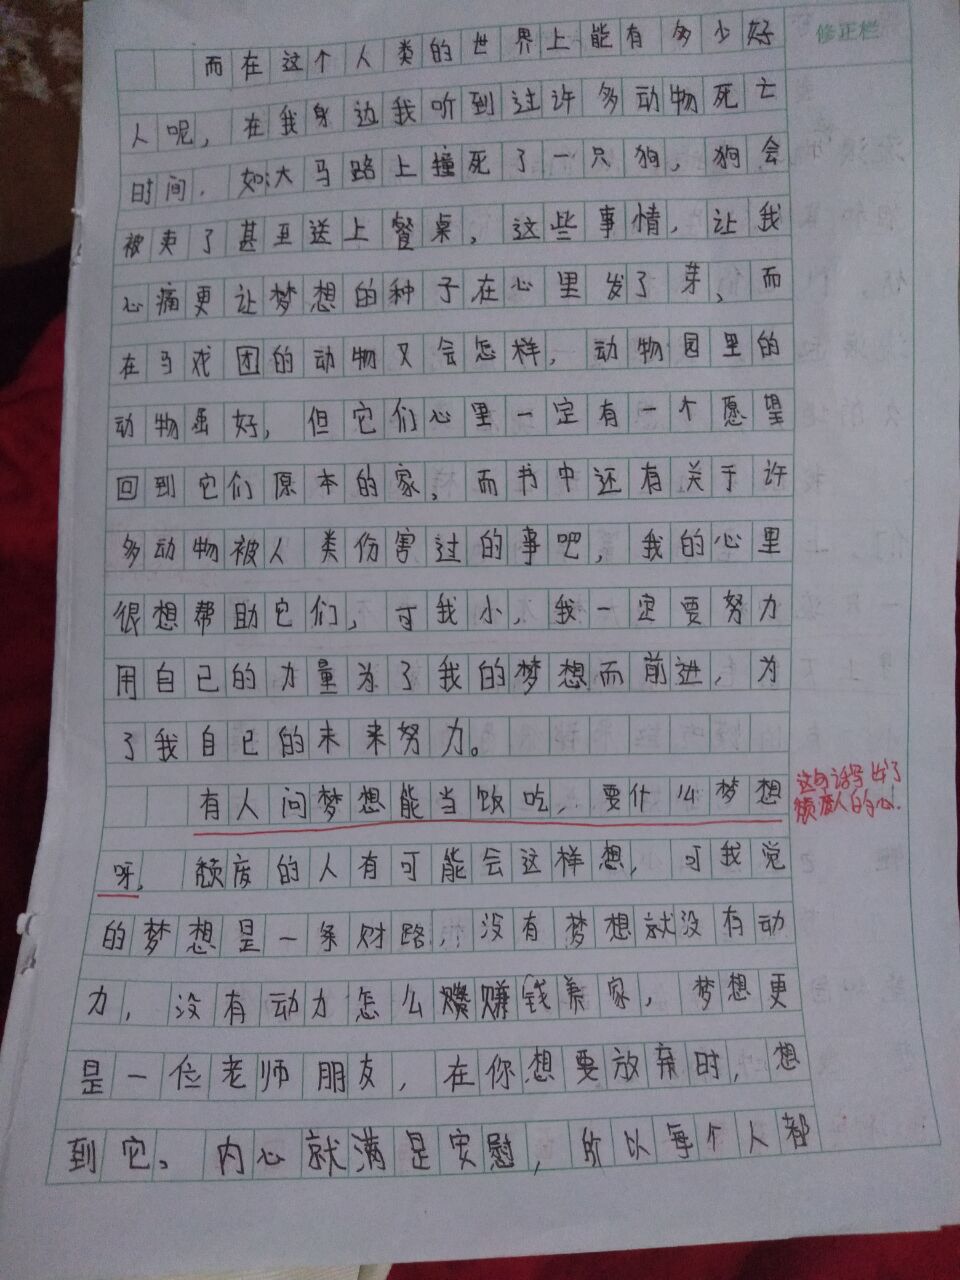 修正栏
而在这个人类的世界上能有多少好
人呢，在我身边我听到过许多动物死亡
时间．如大马路上撞死了一只狗，狗会
被卖了甚至送上餐桌，这些事情，让我
心痛更让梦想的种子在心里发了芽，而
在马戏团的动物又会怎样，动物园里的
动物虽好，但它们心里一定有一个愿望
回到它们原本的家，而书中还有关于许
多动物被人类伤害过的事吧，我的心里
很想帮助它们，可我小，我一定要努力
用自己的力量为了我的梦想而前进，为
了我自己的未来努力。
有人问梦想能当饭吃，要什么梦想
呀，颓废的人有可能会这样想，可我觉
的梦想是一条财路，没有梦想就没有动
力，没有动力怎么赚钱养家，梦想更
是一位老师朋友，在你想要放弃时，想
到它。内心就满是安慰，所以每个人都
这句话写出了
颓废人的心．